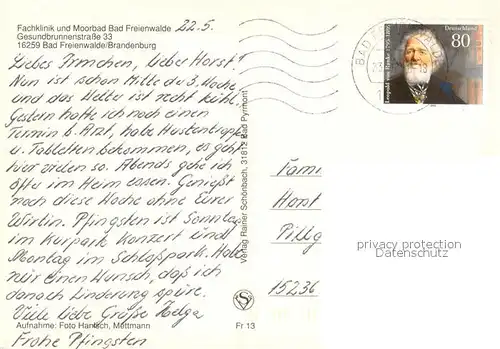 Fachklinik und Moorbad Bad Freienwalde 22.5.
Gesundbrunnenstraße 33
16259 Bad Freienwalde/Brandenburg
Liebes Irmchen, lieber Horst!
Nun ist schon Mitte d. 3. Woche
und das Wetter ist recht kühl.
Gestern hatte ich noch einen
Termin b. Arzt, habe Hustentropf.
u. Tabletten bekommen, es geht
hier vielen so. Abends gehe ich
öfter im Heim essen. Genießt
noch diese Woche ohne Eure
Wirtin. Pfingsten ist Sonntag
im Kurpark Konzert und
Montag im Schloßpark. Habe
nur einen Wunsch, daß ich
danach Linderung spüre.
Viele liebe Grüße Helga
Aufnahme: Foto Hantsch, Mettmann
Fr 13
Frohe Pfingsten
Verlag Rainer Schönbach, 31812 Bad Pyrmont
Deutschland
80
Leopold von Ranke 1795-1886
BAD
Fam.
Horst
15236
privacy protection
Datenschutz